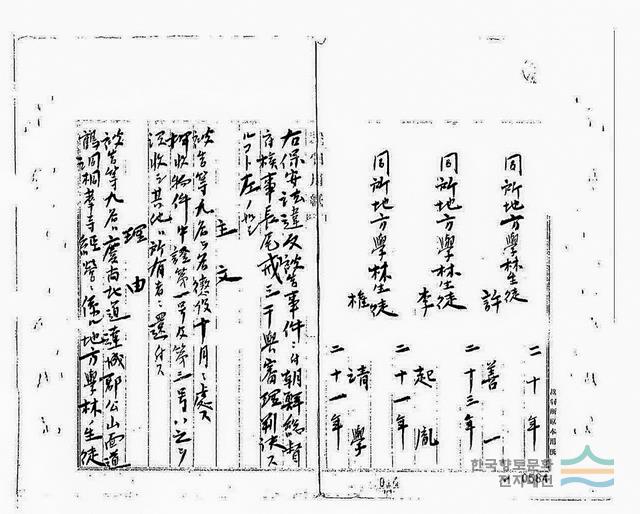 二十年
同所地方學林生徒
許善一
二十三年
同所地方學林生徒
李起胤
二十一年
同所地方學林生徒
權清學
二十一年
右保安法違反被告事件ニ付朝鮮總督
府検事長尾戒三干與審理判決ス
ルコト左ノ如シ
主文
被告等九名ヲ各懲役十月ニ處ス
押收物件中證第一号及第三号ハ之ヲ
沒收シ其他ハ所有者ニ還付ス
理由
被告等九名ハ慶尚北道達城郡公山面道
鶴洞桐華寺経営ニ係ル地方學林ノ生徒
한국향토문화
전자대전
0584